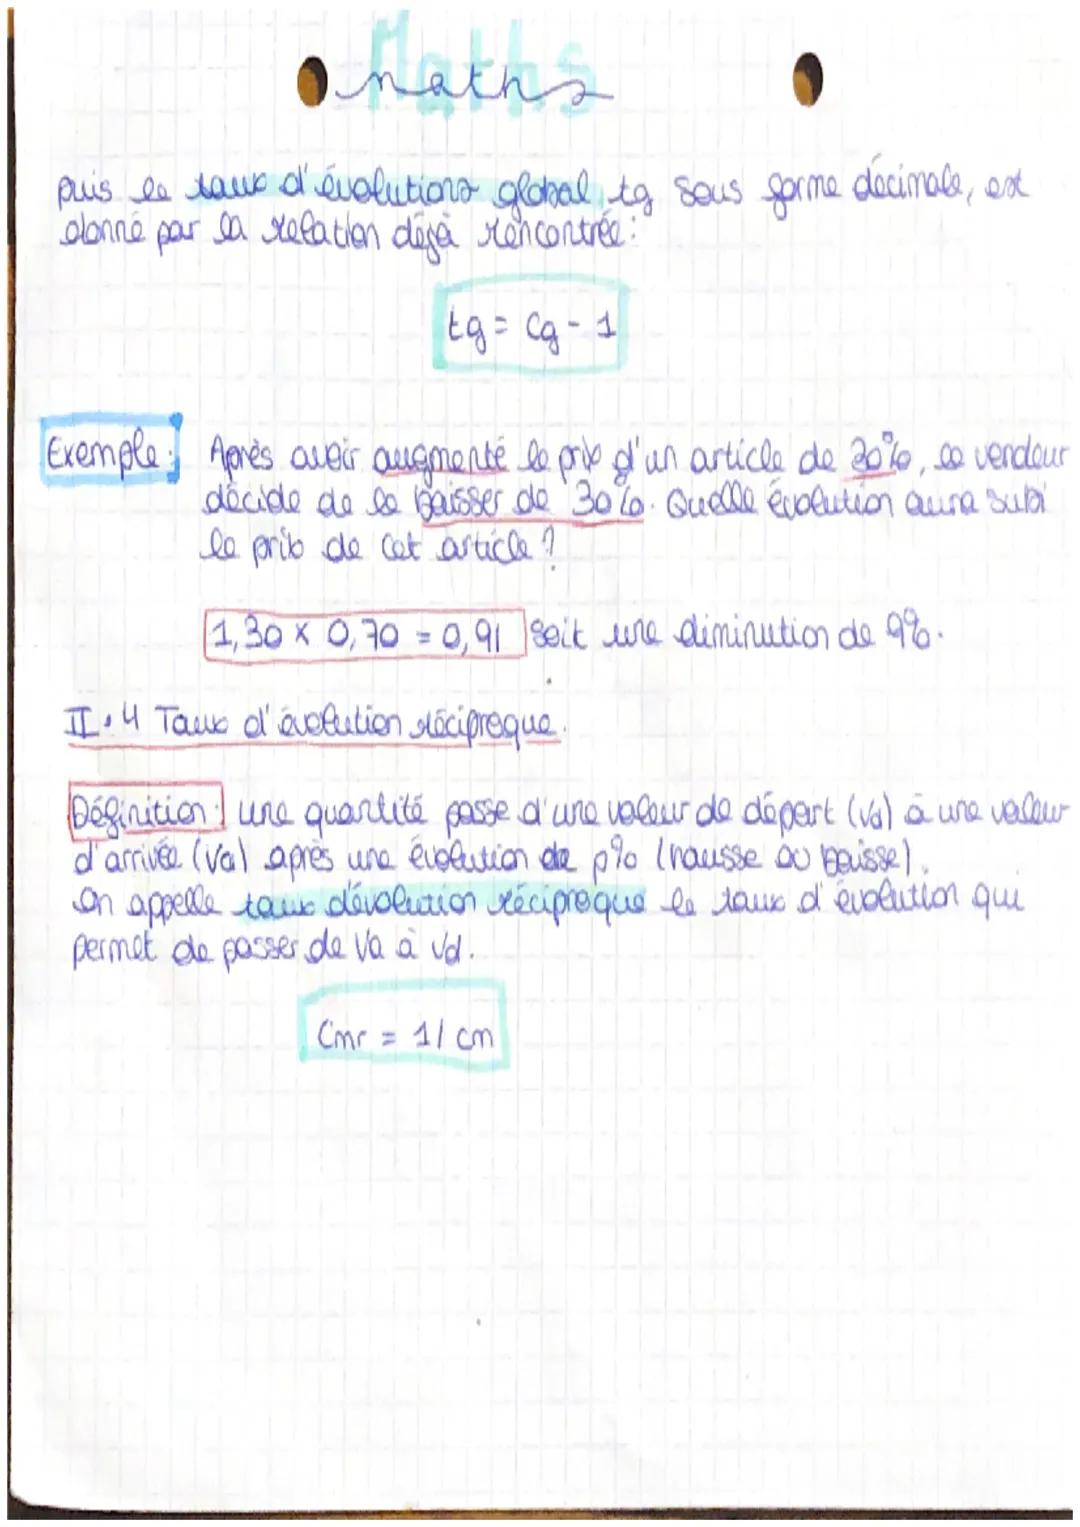 Maths
maths
puis le taux d'évolutions global, tg sous forme décimale, est
donné par la relation déjà rencontrée :
tg = Cg - 1
Exemple : Après avoir augmenté le prix d'un article de 30%, le vendeur
décide de le baisser de 30%. Quelle évolution aura subi
le prix de cet article ?
1,30 x 0,70 = 0,91 soit une diminution de 9%.
II.4 Taux d'évolution réciproque.
Définition : une quantité passe d'une valeur de départ (Vd) à une valeur
d'arrivée (Va) après une évolution de p% (hausse ou baisse).
On appelle taux d'évolution réciproque le taux d'évolution qui
permet de passer de Va à Vd.
Cmr = 1/ cm